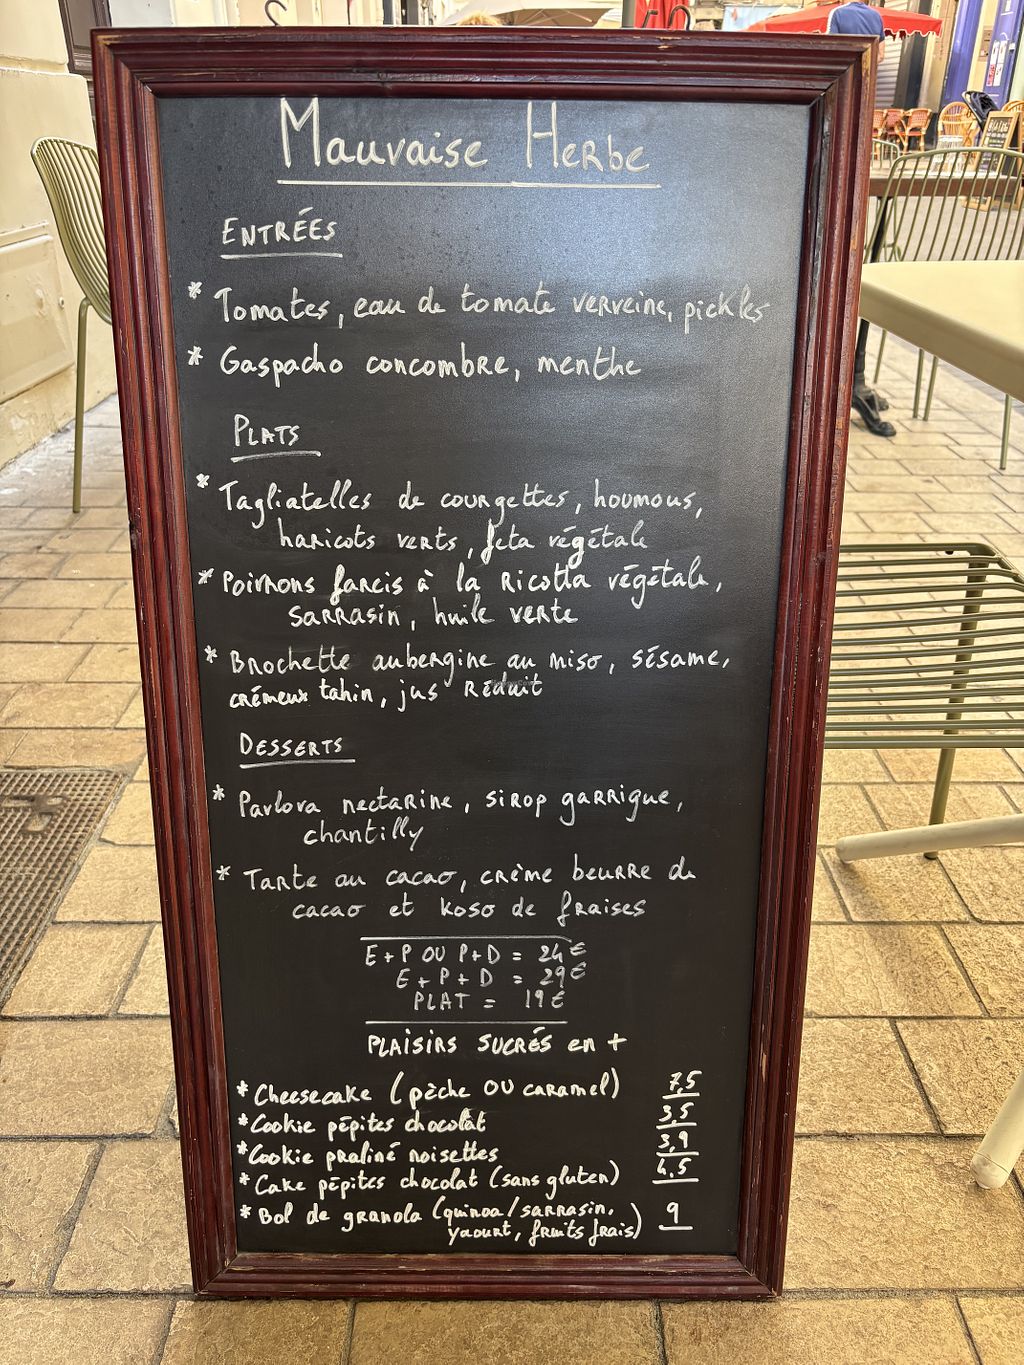 Mauvaise Herbe
ENTRÉES
* Tomates, eau de tomate verveine, pickles
* Gaspacho concombre, menthe
PLATS
* Tagliatelles de courgettes, houmous,
haricots verts, feta végétale
* Poivrons farcis à la Ricotta végétale,
sarrasin, huile verte
* Brochette aubergine au miso, sésame,
crémeux tahin, jus Réduit
DESSERTS
* Pavlova nectarine, sirop garrigue,
chantilly
* Tarte au cacao, crème beurre de
cacao et koso de fraises
E + P OU P + D = 24€
E + P + D = 29€
PLAT = 19€
PLAISIRS SUCRÉS en +
* Cheesecake (pèche OU caramel) 7,5
* Cookie pépites chocolat 3,5
* Cookie praliné noisettes 3,9
* Cake pépites chocolat (sans gluten) 4,5
* Bol de granola (quinoa/sarrasin, 9
yaourt, fruits frais)